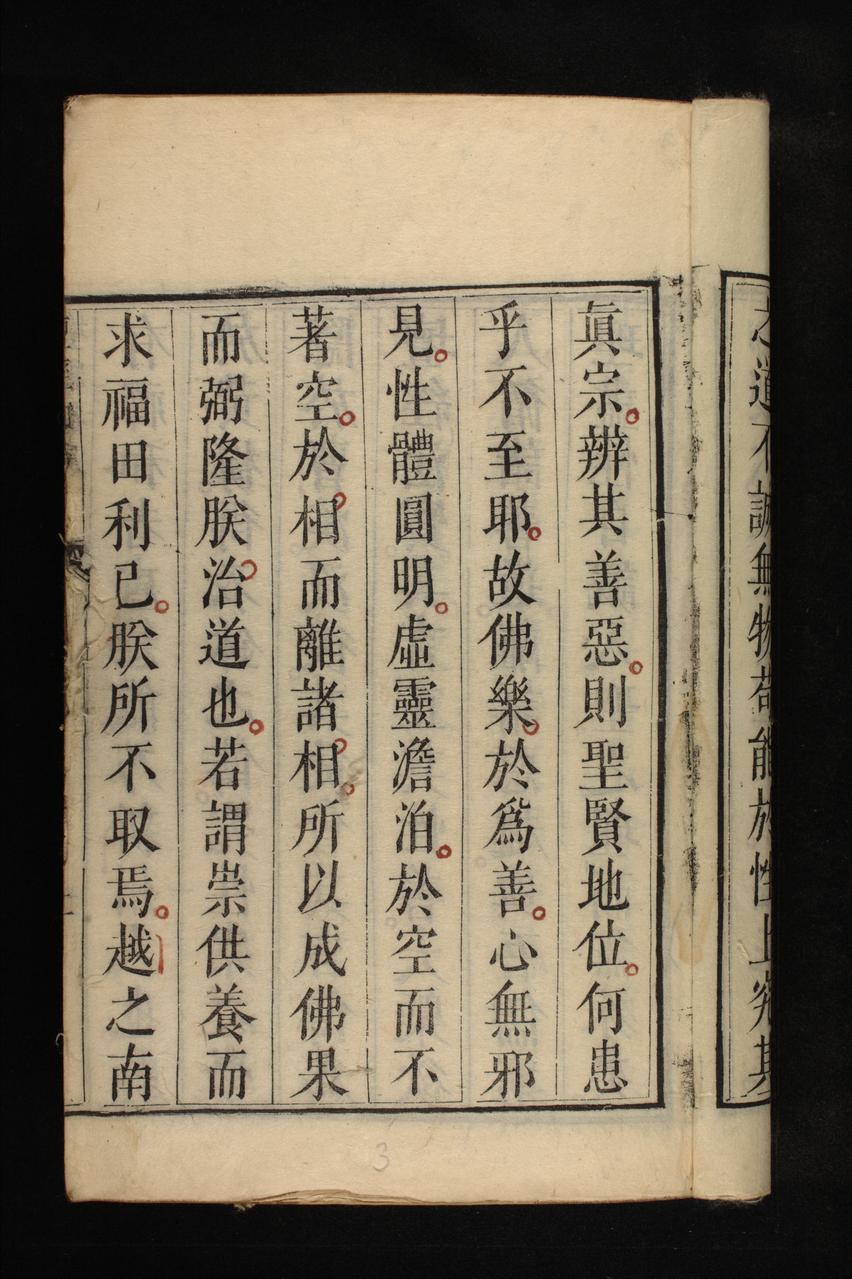 之道不誠無物苟能於性上究其
眞宗辨其善惡則聖賢地位何患
乎不至耶故佛樂於爲善心無邪
見性體圓明虛靈澹泊於空而不
著空於相而離諸相所以成佛果
而弼隆朕治道也若謂崇供養而
求福田利己朕所不取焉越之南
3